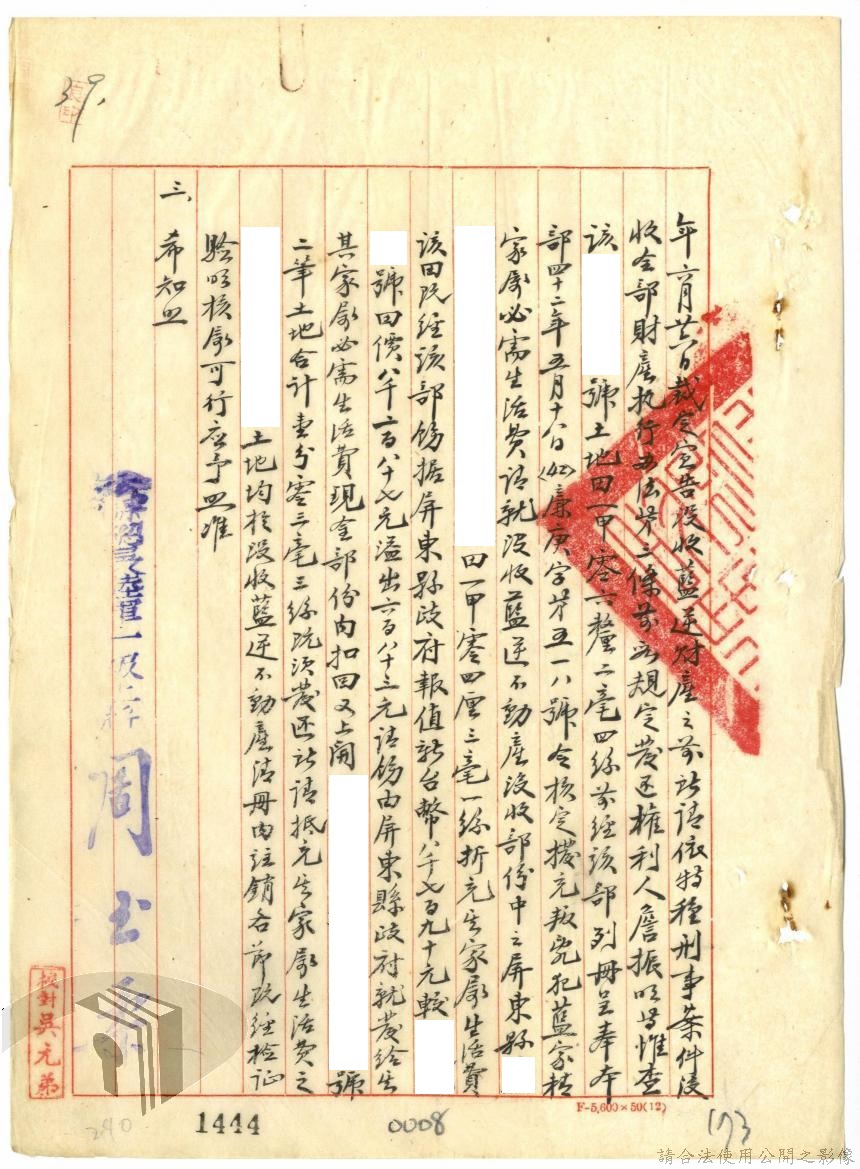 年六月廿六日裁定宣告没收藍逆財產之前
請依特種刑事案件没
收全部財產執行办法第三條前段規定發还權利人詹振
惟查
該
號土地田一甲零六釐二毫四絲前經該部列冊呈奉本
部四十二年五月十八日
廉庚字第五一八號令核定撥充叛亂犯藍家精
家屬必需生活費請就没收藍逆不動產没收部份中之屏東縣
田一甲零四厘三毫一絲折充其家屬生活費
該田既經該部飭据屏東縣政府報值新台幣八千七百九十元較
號田價八千一百八十七元溢出六百八十三元請飭由屏東縣政府就發給其
其家屬必需生活費現金部份內扣回又上開
號
二筆土地合計壹分零三毫三絲既須發还
請抵充其家屬生活費之
土地均於没收藍逆不動產清冊內註銷各節既經檢証
騐明核屬可行應予照准
三、希知照
周
校對吳元弟
39.
240
1444
0008
173
F-5,600×50(12)
請合法使用公開之影像